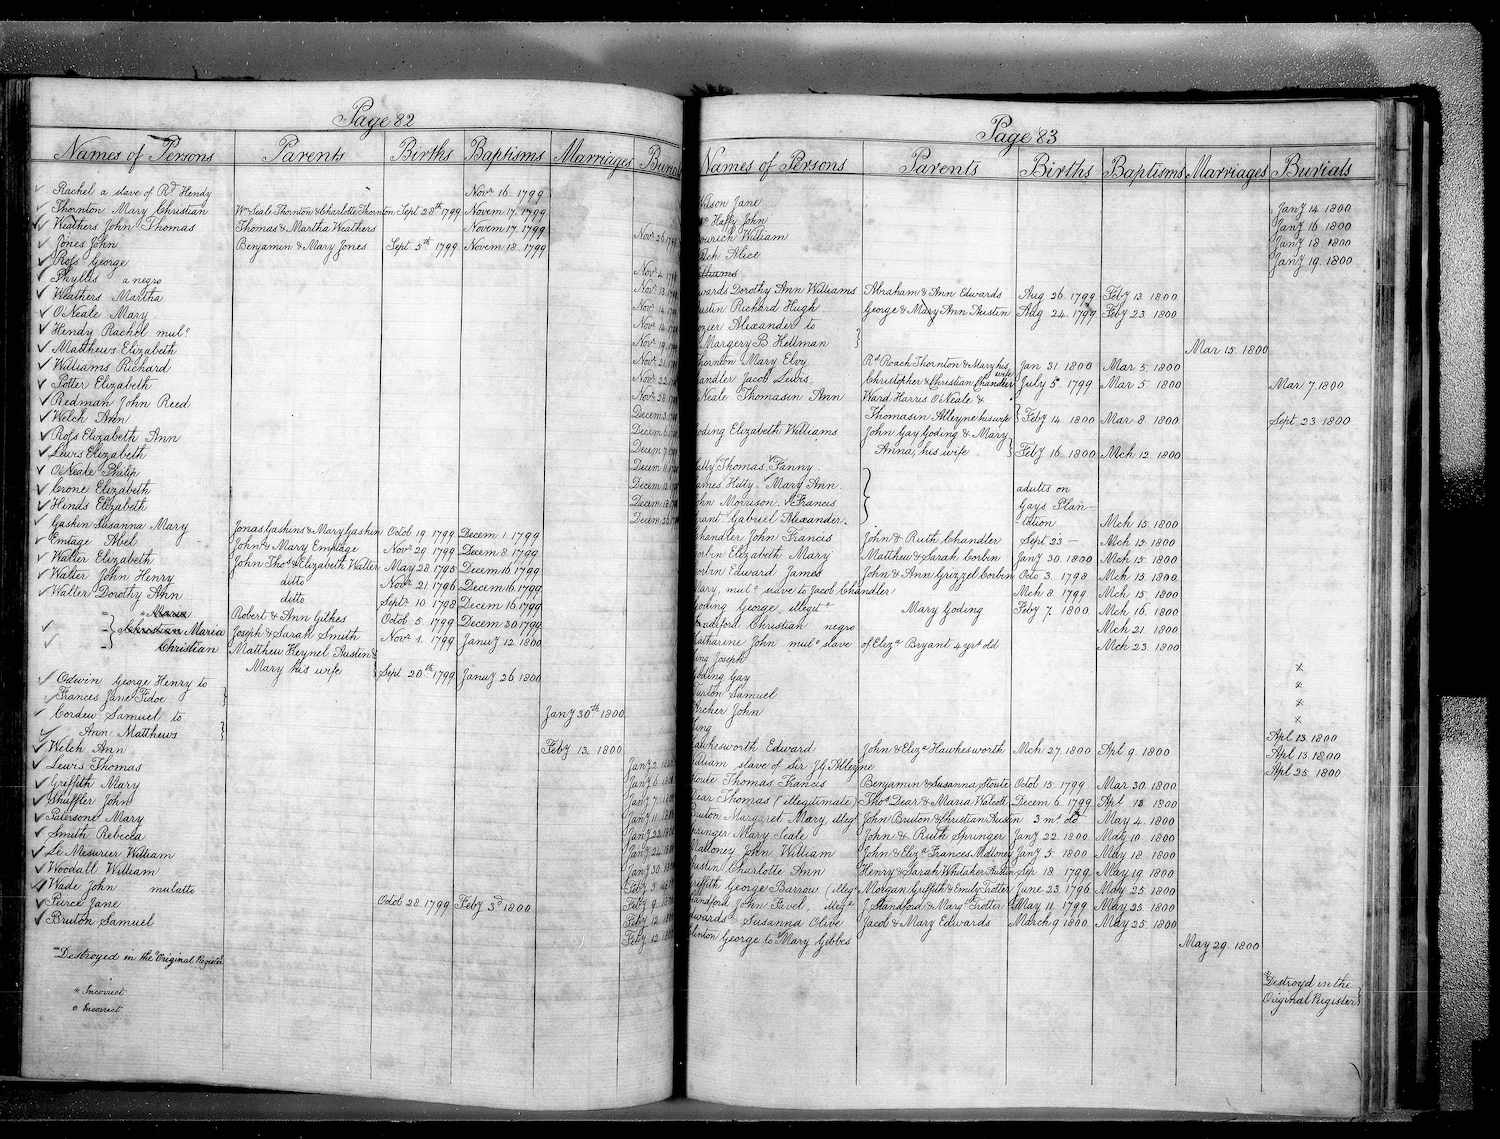 Page 82
Names of Persons Parents Births Baptisms Marriages Burial
Rachel a slave of Rd Hendy Novr 16. 1799
Thornton Mary Christian Wm Seale Thornton & Charlotte Thornton Sept 28th 1799 Novem 17. 1799
Weathers John Thomas Thomas & Martha Weathers Novem 17. 1799
Jones John Benjamin & Mary Jones Sept 5th 1799 Novem 18. 1799
Ross George
Phyllis a negro
Weathers Martha
O'Neale Mary
Hendy Rachel mulo
Matthews Elizabeth
Williams Richard
Potter Elizabeth
Redman John Reed
Welch Ann
Ross Elizabeth Ann
Lewis Elizabeth
O'Neale Philip
Crone Elizabeth
Hinds Elizabeth
Gaskin Susanna Mary Jonas Gaskins & Mary Gaskin Octob 19. 1799 Decem 1. 1799
Emtage Abel John & Mary Emtage Novr 29. 1799 Decem 8. 1799
Walter Elizabeth John Thos & Elizabeth Walter May 28. 1795 Decem 16. 1799
Walter John Henry ditto Novr 21. 1796 Decem 16. 1799
Walter Dorothy Ann ditto Septr 10. 1798 Decem 16. 1799
Maria Robert & Ann Gilkes Octob 5. 1799 Decem 30. 1799
Christian Maria Joseph & Sarah Smith Novr 1. 1799 Januy 12. 1800
Christian Matthew Heynel Austin &
Mary his wife Sept 20th 1799 Januy 26. 1800
Odwin George Henry to
Frances Jane Fidoe Jany 30th 1800
Cordew Samuel to
Ann Matthews Feby 13. 1800
Welch Ann
Lewis Thomas
Griffith Mary
Shuffler John
Patersone Mary
Smith Rebecca
Le Mesurier William
Woodall William
Wade John mulatto
Peirce Jane Octob 28. 1799 Feby 3d 1800
Bruton Samuel
"Destroyed in the Original Register
* Incorrect
o Incorrect
Page 83
Names of Persons Parents Births Baptisms Marriages Burials
Jane Jany 14. 1800
Haffy John Jany 16. 1800
William Jany 18. 1800
Alice Jany 19. 1800
Dorothy Ann Williams Abraham & Ann Edwards Aug 26. 1799 Feby 13. 1800
Richard Hugh George & Mary Ann Austin Aug 24. 1799 Feby 23. 1800
Alexander to
Margery B Hellman Mar 15. 1800
Mary Elvy Rd Roach Thornton & Mary his wife Jan 31. 1800 Mar 5. 1800
Jacob Lewis Christopher & Christian Chandler July 5 1799 Mar 5 1800 Mar 7. 1800
Thomasin Ann Ward Harris O'Neale &
Thomasin Alleyne his wife Feby 14. 1800 Mar 8. 1800 Sept 23. 1800
Elizabeth Williams John Gay Goding & Mary
Anna, his wife Feby 16. 1800 Mch 12. 1800
Thomas. Fanny.
Hitty. Mary Ann. adults on
Morrison. Francis Gays Plan-
Gabriel Alexander. tation Mch 15. 1800
John Frances John & Ruth Chandler Sept 23 — Mch 15. 1800
Elizabeth Mary Matthew & Sarah Corbin Jany 30. 1800 Mch 15. 1800
Edward James John & Ann Grizzel Corbin Octo 3. 1798 Mch 15. 1800
mulo slave to Jacob Chandler Mch 8. 1799 Mch 15. 1800
George illegite Mary Goding Feby 7. 1800 Mch 16. 1800
Christian negro Mch 21. 1800
John mulo slave of Eliza Bryant 4 yrs old Mch 23. 1800
Joseph x
Gay x
Samuel x
John x
Apl 13. 1800
Edward John & Eliza Hawkesworth Mch 27. 1800 Apl 9. 1800 Apl 13. 1800
slave of Sir J. G. Alleyne Apl 25. 1800
Thomas Francis Benjamin & Susanna Stoute Octob 15. 1799 Mar 30. 1800
Thomas (illegitimate) Thos Dear & Maria Walcott Decem 6. 1799 Apl 13. 1800
Margaret Mary illeg John Bruton & Christian Austin 3 ms old May 4. 1800
Mary Neale John & Ruth Springer Jany 22. 1800 May 10. 1800
John William John & Eliza Frances Malloney Jany 5. 1800 May 18. 1800
Charlotte Ann Henry & Sarah Whitaker Austin Sep 18. 1799 May 19. 1800
George Barrow (illege Morgan Griffith & Emily Trotter June 23. 1796 May 25. 1800
John Fevel, illege J Standford & Margt Trotter May 11. 1799 May 25. 1800
Susanna Olive Jacob & Mary Edwards March 9. 1800 May 25. 1800
George to Mary Gibbes May 29. 1800
Destroyd in the
Original Register